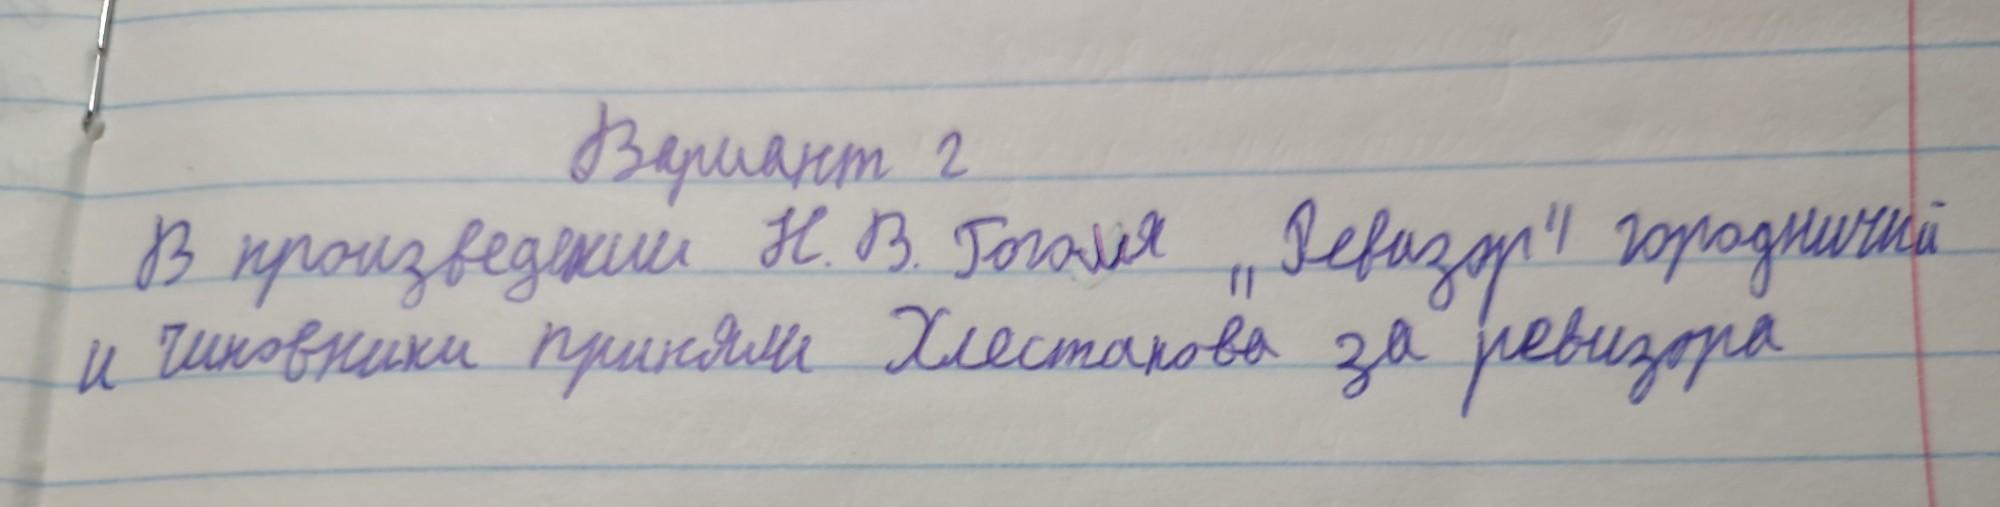 Вариант 2
В произведении Н. В. Гоголя „Ревизор" городничий
и чиновники приняли Хлестакова за ревизора